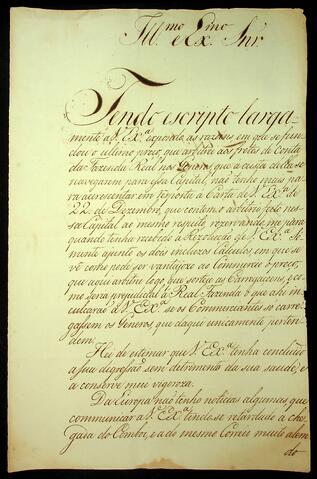 Ill.mo e Ex.mo Snr.
Tendo escripto larga-
mente a V. Ex.a expondo as razoens em que se fun-
dou o ultimo preço, que arbitrei aos fretes de conta
da Fazenda Real nos Generos, que á custa della se
navegarem para essa Capital, não tenho mais pa-
ra acrescentar em resposta á Carta de V. Ex.a de
22 de Dezembro, que contem o arbitrio feito nes-
sa Capital ao mesmo respeito, rezervando-me para
quando tenha recebido a Rezolução de V. Ex.a So-
mente ajunto os dois incluzos Calculos, em que se
vê como pode ser vantajozo ao Commercio o preço,
que aqui arbitrei logo que sortejo as Carregaçoens, e co-
mo seria prejudicial á Real Fazenda o que ahi in-
culcarão a V. Ex.a se os Commerciantes só carre-
gassem os Generos, que daqui unicamente perten-
dem.
Hei de estimar que V. Ex.a tenha concluido
a sua digressão sem detrimento da sua saude, e
a conserve mui vigoroza.
Da Europa não tenho noticias algumas, que
communicar a V. Ex.a tendo-se retardado a che-
gada do Comboi, e a do mesmo Correio muito alem
do